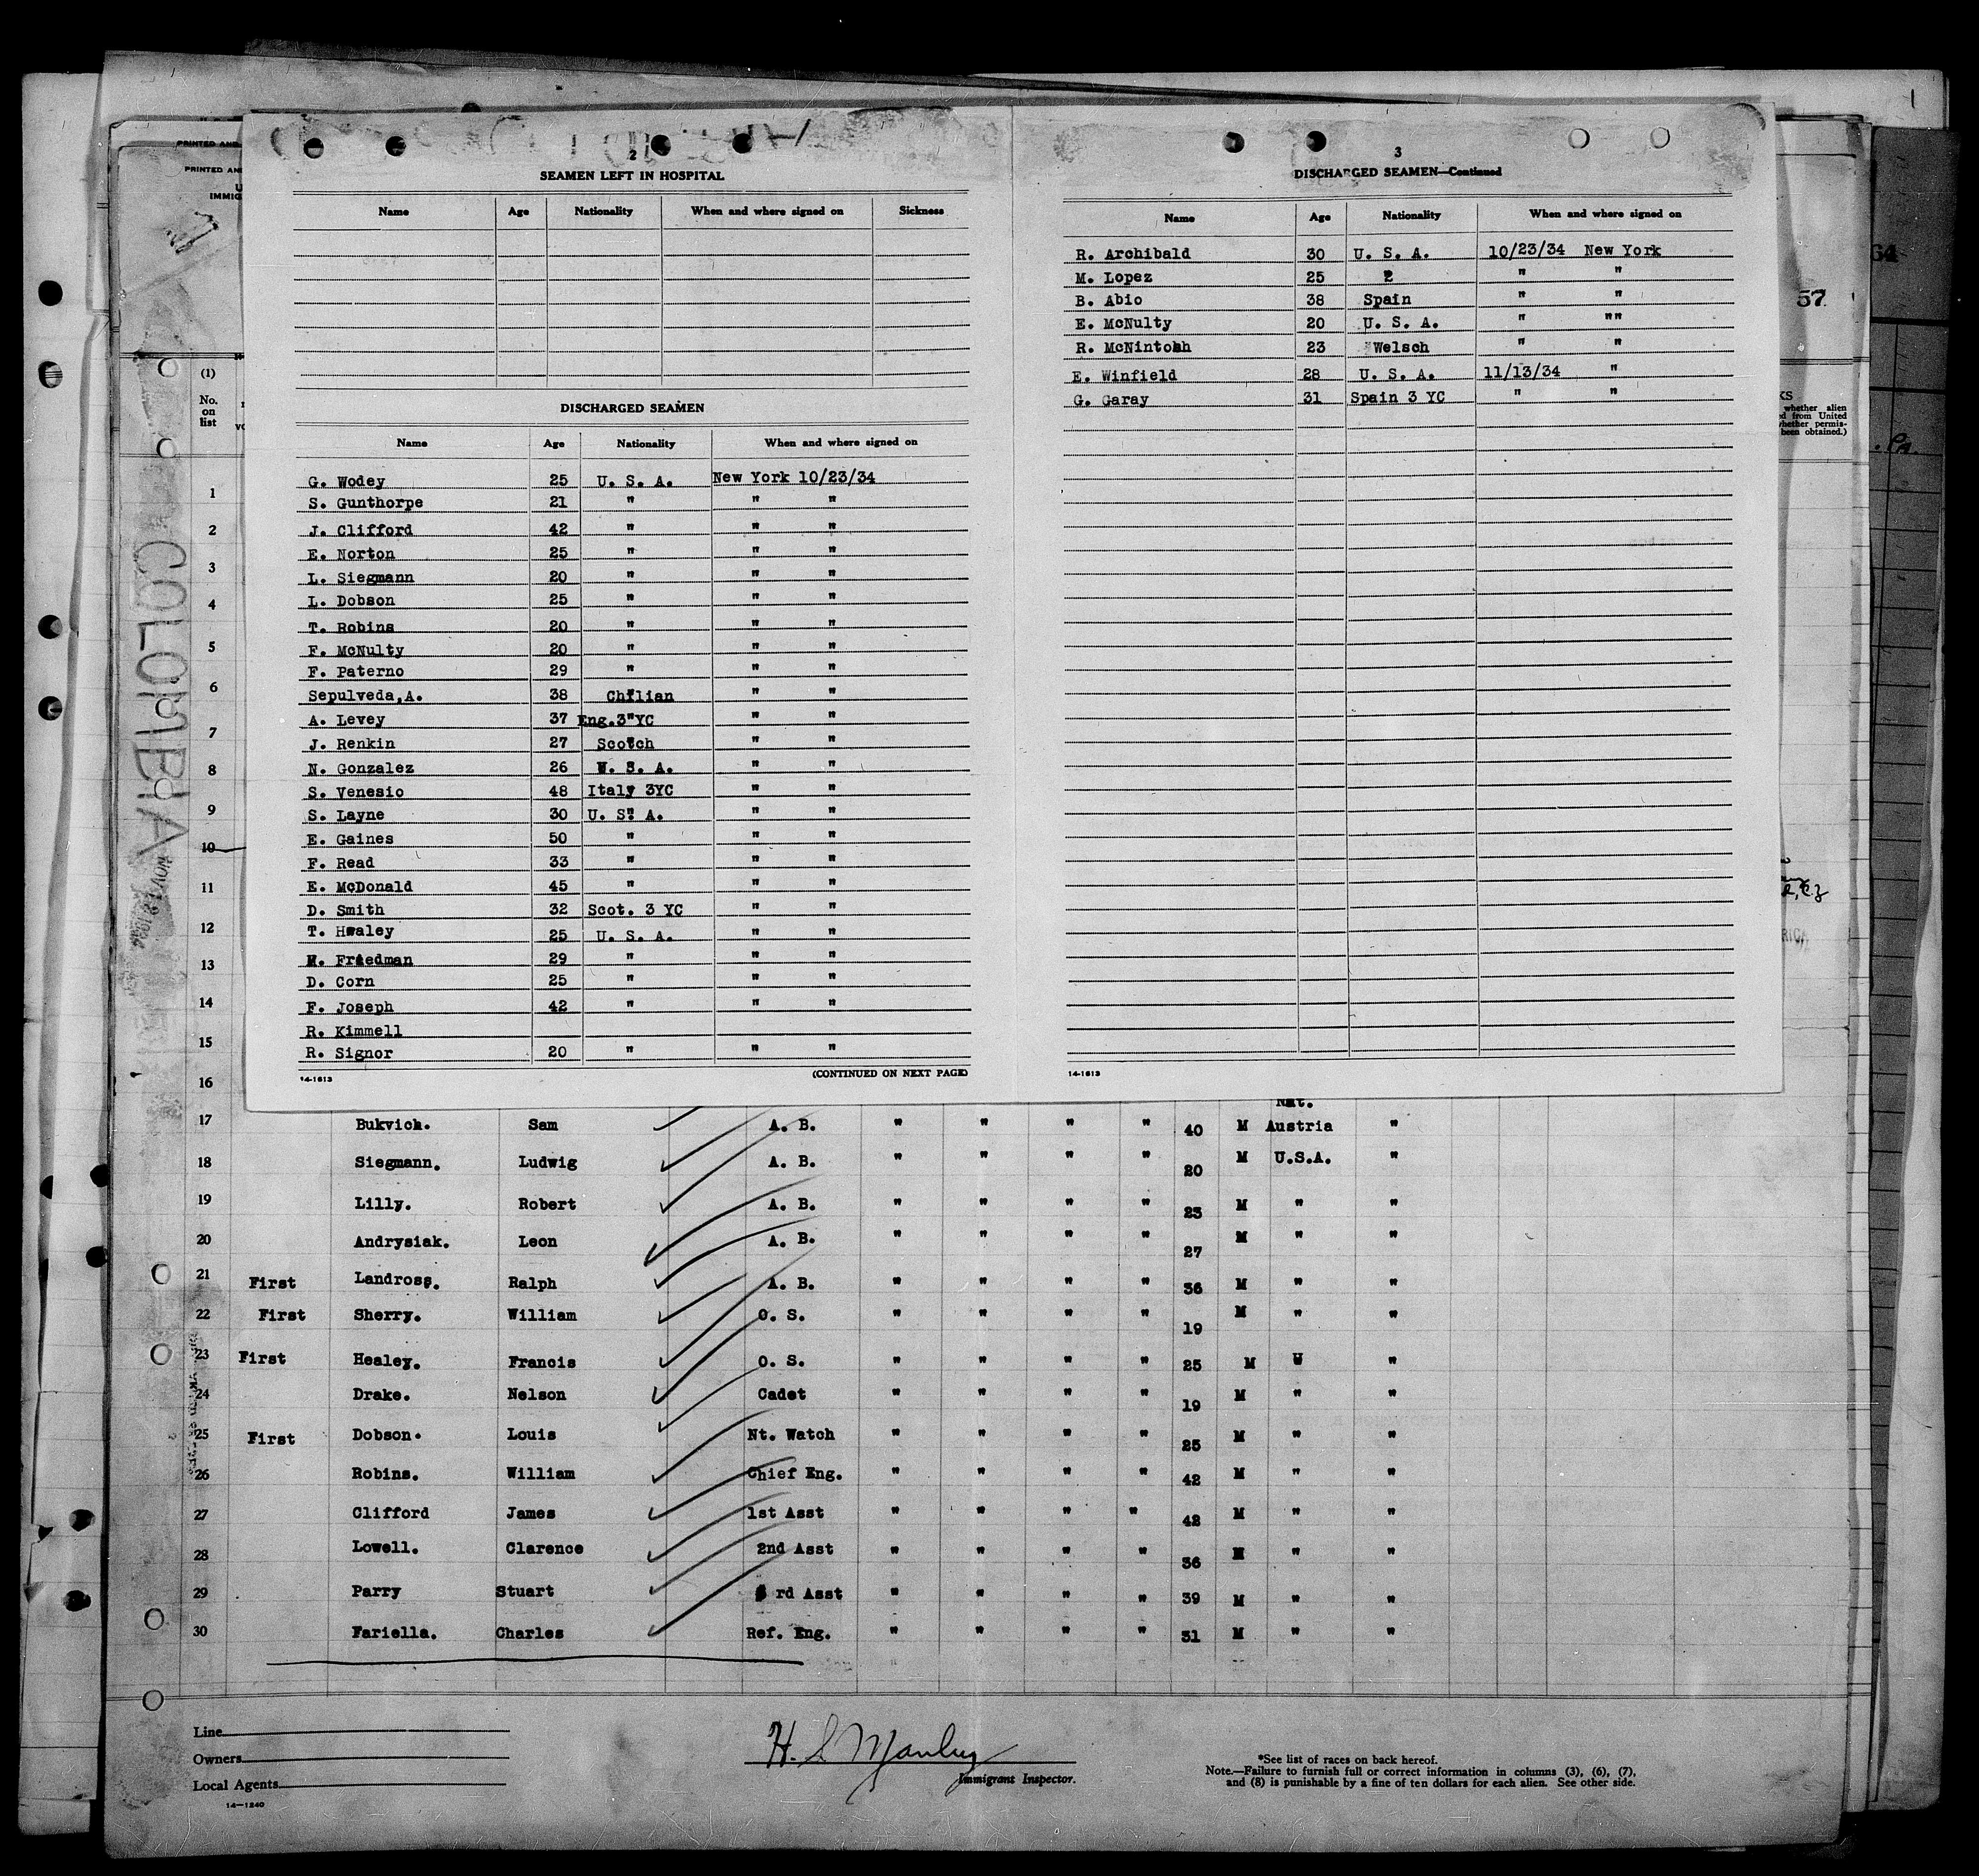 2
SEAMEN LEFT IN HOSPITAL
Name Age Nationality When and where signed on Sickness
DISCHARGED SEAMEN
Name Age Nationality When and where signed on
G. Wodey 25 U. S. A. New York 10/23/34
S. Gunthorpe 21 " " "
J. Clifford 42 " " "
E. Norton 25 " " "
L. Siegmann 20 " " "
L. Dobson 25 " " "
T. Robins 20 " " "
F. McNulty 20 " " "
F. Paterno 29 " " "
Sepulveda,A. 38 Chilian " "
A. Levey 37 Eng.3"YC " "
J. Renkin 27 Scotch " "
N. Gonzalez 26 U. S. A. " "
S. Venesio 48 Italy 3YC " "
S. Layne 30 U. S. A. " "
E. Gaines 50 " " "
F. Read 33 " " "
E. McDonald 45 " " "
D. Smith 32 Scot. 3 YC " "
T. Hwaley 25 U. S. A. " "
M. Friedman 29 " " "
D. Corn 25 " " "
F. Joseph 42 " " "
R. Kimmell
R. Signor 20 " " "
14-1613 (CONTINUED ON NEXT PAGE)
3
DISCHARGED SEAMEN—Continued
Name Age Nationality When and where signed on
R. Archibald 30 U. S. A. 10/23/34 New York
M. Lopez 25 " "
B. Abio 38 Spain " "
E. McNulty 20 U. S. A. " ""
R. McNintosh 23 Welsch " "
E. Winfield 28 U. S. A. 11/13/34 "
G. Garay 31 Spain 3 YC " "
14-1613
PRINTED AND
PRINTED AN
U
IMMIG
(1)
No.
on
list
64
57
KS
whether alien
ed from United
whether permis-
been obtained.)
. Pa.
COLOMBIA
1
2
3
4
5
6
7
8
9
10
11
12
13
14
15
16
Nat.
17 Bukvich. Sam A. B. " " " " 40 M Austria "
18 Siegmann. Ludwig A. B. " " " " 20 M U.S.A. "
19 Lilly. Robert A. B. " " " " 23 M " "
20 Andrysiak. Leon A. B. " " " " 27 M " "
21 First Landross. Ralph A. B. " " " " 36 M " "
22 First Sherry. William O. S. " " " " 19 M " "
23 First Healey. Francis O. S. " " " " 25 M "
24 Drake. Nelson Cadet " " " " 19 M " "
25 First Dobson. Louis Nt. Watch " " " " 25 M " "
26 Robins. William Chief Eng. " " " " 42 M " "
27 Clifford James 1st Asst " " " " 42 M " "
28 Lowell. Clarence 2nd Asst " " " " 36 M " "
29 Parry Stuart 3 rd Asst " " " " 39 M " "
30 Fariella. Charles Ref. Eng. " " " " 31 M " "
Line
Owners
Local Agents
14—1240
H. S Manley
Immigrant Inspector.
*See list of races on back hereof.
Note.—Failure to furnish full or correct information in columns (3), (6), (7),
and (8) is punishable by a fine of ten dollars for each alien. See other side.